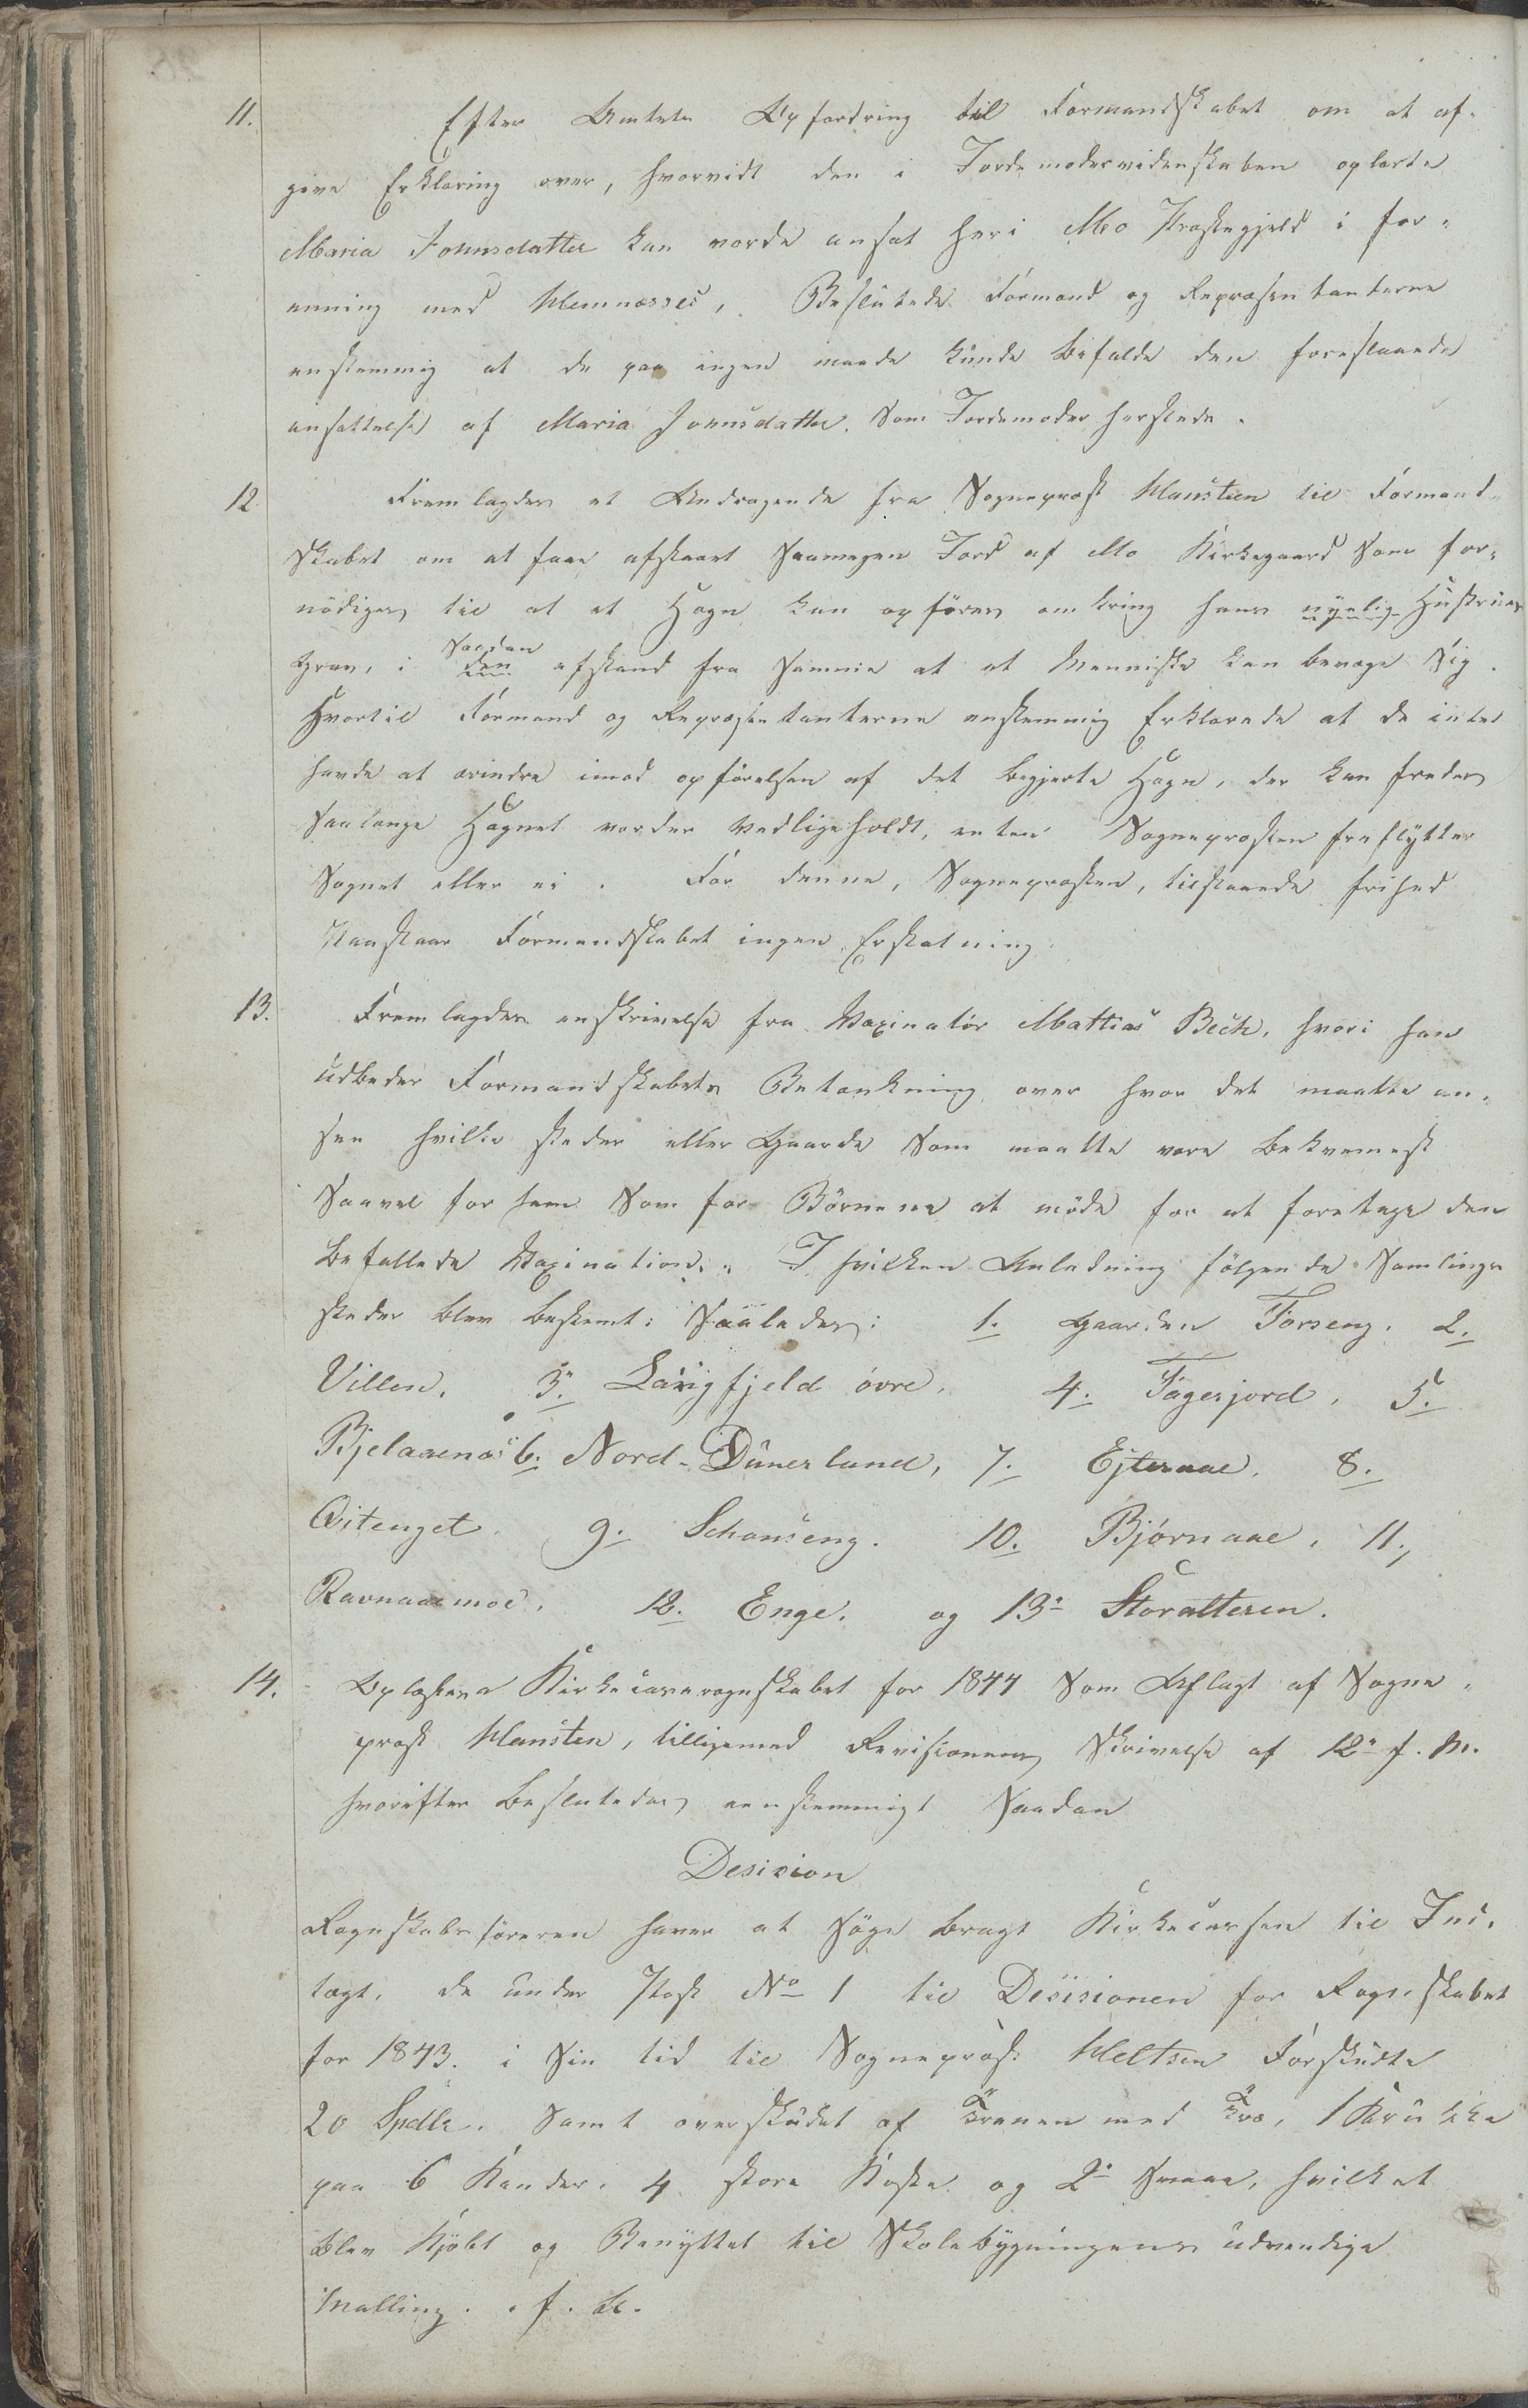 11. Efter Amtets Opfordring til Formandskabet om at af-
give Erklæring over, hvorvidt den i Jordemodervidenskaben oplærte
Maria Johnsdatter kan vorde ansat her i Mo Præstegjeld i for-
enning med Hemnæsses, Besluttede Formand og Repræsentanterne
enstemmig at de paa ingen maade kunde bifalde den foreslaaede
ansættelse af Maria Johnsdatter som Jordemoder hersteds.
12 Fremlagdes et Andragende fra Sognepræst Hansteen til Formand-
skabet om at faae afstaaet saamegen Jord af Mo Kirkegaard som for-
nødiges til at et Hegn kan opføres omkring hans nyelig Hustrues
Grav, i saadan den afstand fra samme at et Menniske kan bevæge sig.
Hvortil Formand og Repræsentanterne enstemmig Erklærede at de intet
havde at erindre imod opførelsen af det begjerte Hegn, der kan fredes
saalænge Hegnet vorder vedligeholdt, enten Sognepræsten fraflytter
Sognet eller ei. For denne, Sognepræsten, tilstaaede frihed
Paastaar Formandskabet ingen Erstatning.
13. Fremlagdes enskrivelse fra Vaxinatør Mattias Bech, hvori han
udbeder Formandskabets Betænkning over hvor det maatte an-
see hvilke steder eller Gaarde som maatte være bekvemest
saavel for ham som for Börnene at möde for at foretage den
befallede Vaxination. I hvilken Anledning fölgende Samlings
steder blev bestemt: Saaledes: 1. Gaarden Forseng. 2.
Villen. 3. Langfjeld övre. 4. Fagerjord. 5.
Bjelaaenæs 6. Nord-Dunerland, 7. Ejteraae. 8.
Qitenget. 9. Schonseng. 10. Björnaae. 11.,
Ravnaamoe. 12. Enge. og 13. Storalteren.
14. Oplæstes Kirkecasseregnskabet for 1844 som Aflagt af Sogne-
præst Hansten, tilligemed Revisionens Skrivelse af 12. f. M.
hvorefter besluttedes eenstemmigt saadan
Desision
Regnskabsföreren haver at söge bragt Kirkecassen til Ind-
tægt, de under Post No 1 til Desisionen for Regnskabet
for 1843. i sin tid til Sognepræst Heltsen Forskudte
20 Spdlr. samt overskudet af Tranen med 1 Krukke
paa 6 Kander. 4 store Koste og 2 smaae, hvilket
blev Kjöbt og Benyttet til Skolebygningens udvendige
Malling. f. A.